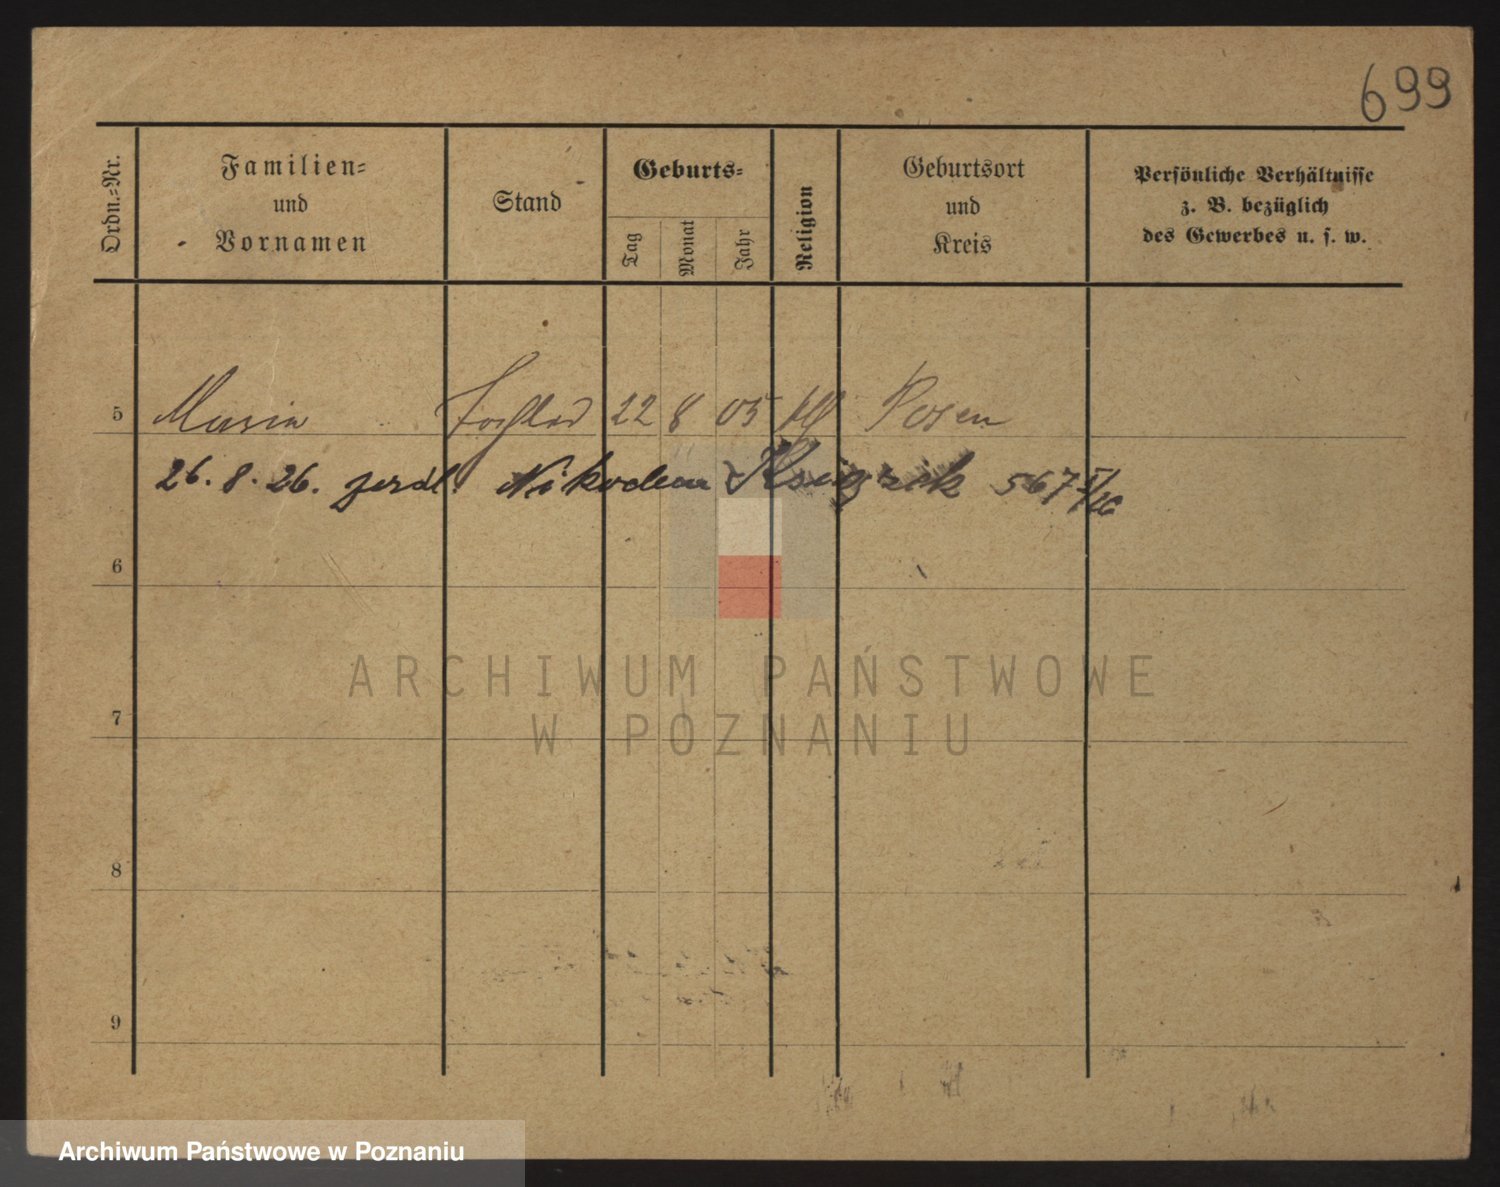 699
Ordn.-Nr.
Familien-
und
Vornamen
Stand
Geburts-
Tag
Monat
Jahr
Religion
Geburtsort
und
Kreis
Persönliche Verhältnisse
z. B. bezüglich
des Gewerbes u. s. w.
5 Maria 22 8 05 Posen
26. 8. 26. Nikodem 567
6
ARCHIWUM PAŃSTWOWE
7
W POZNANIU
8
9
Archiwum Państwowe w Poznaniu